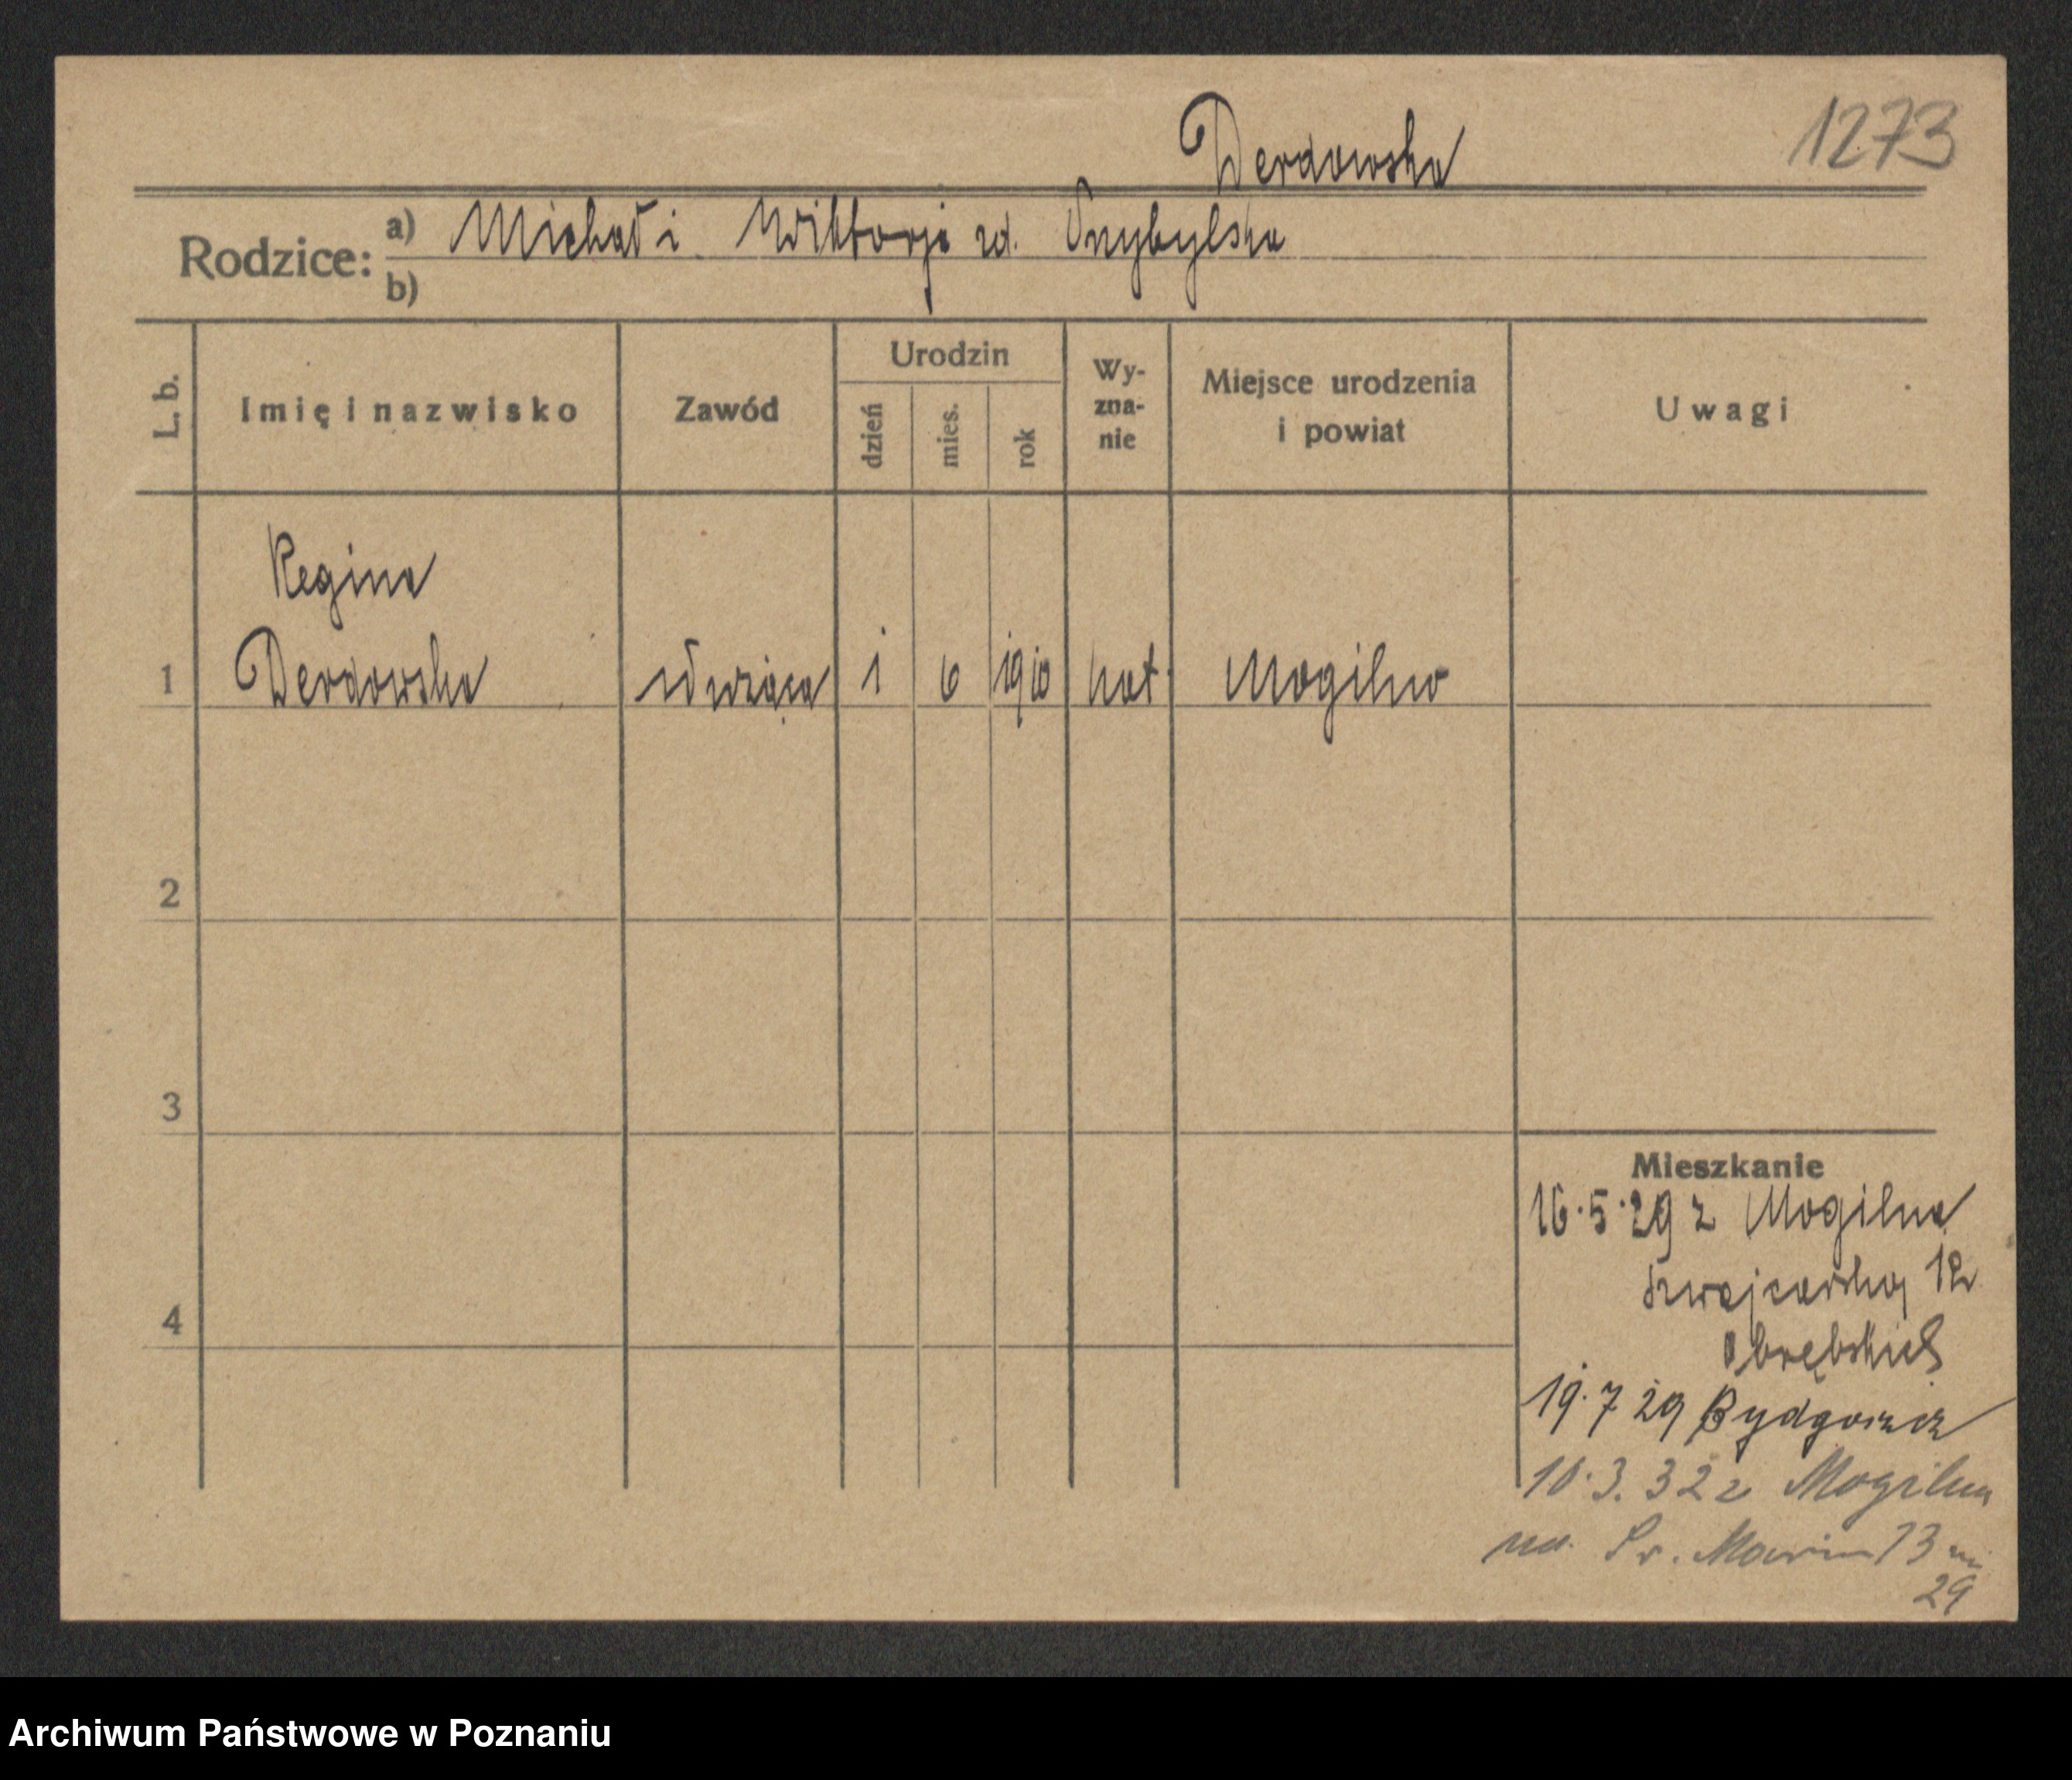 1273
Derdowska
Rodzice: a) Michał i Wiktorja zd. Przybylska
b)
L. b. Imię i nazwisko Zawód Urodzin dzień mies. rok Wy-zna-nie Miejsce urodzenia i powiat Uwagi
Regina
1 Derdowska służąca 1 6 1910 kat. Mogilno
2
3
4
Mieszkanie
16.5.29 z Mogilna
Szwajcarska 12
Obrębski
19.7 29 Bydgoszcz
10.3.32 z Mogilna
na Św. Marcin 73 m
29
Archiwum Państwowe w Poznaniu